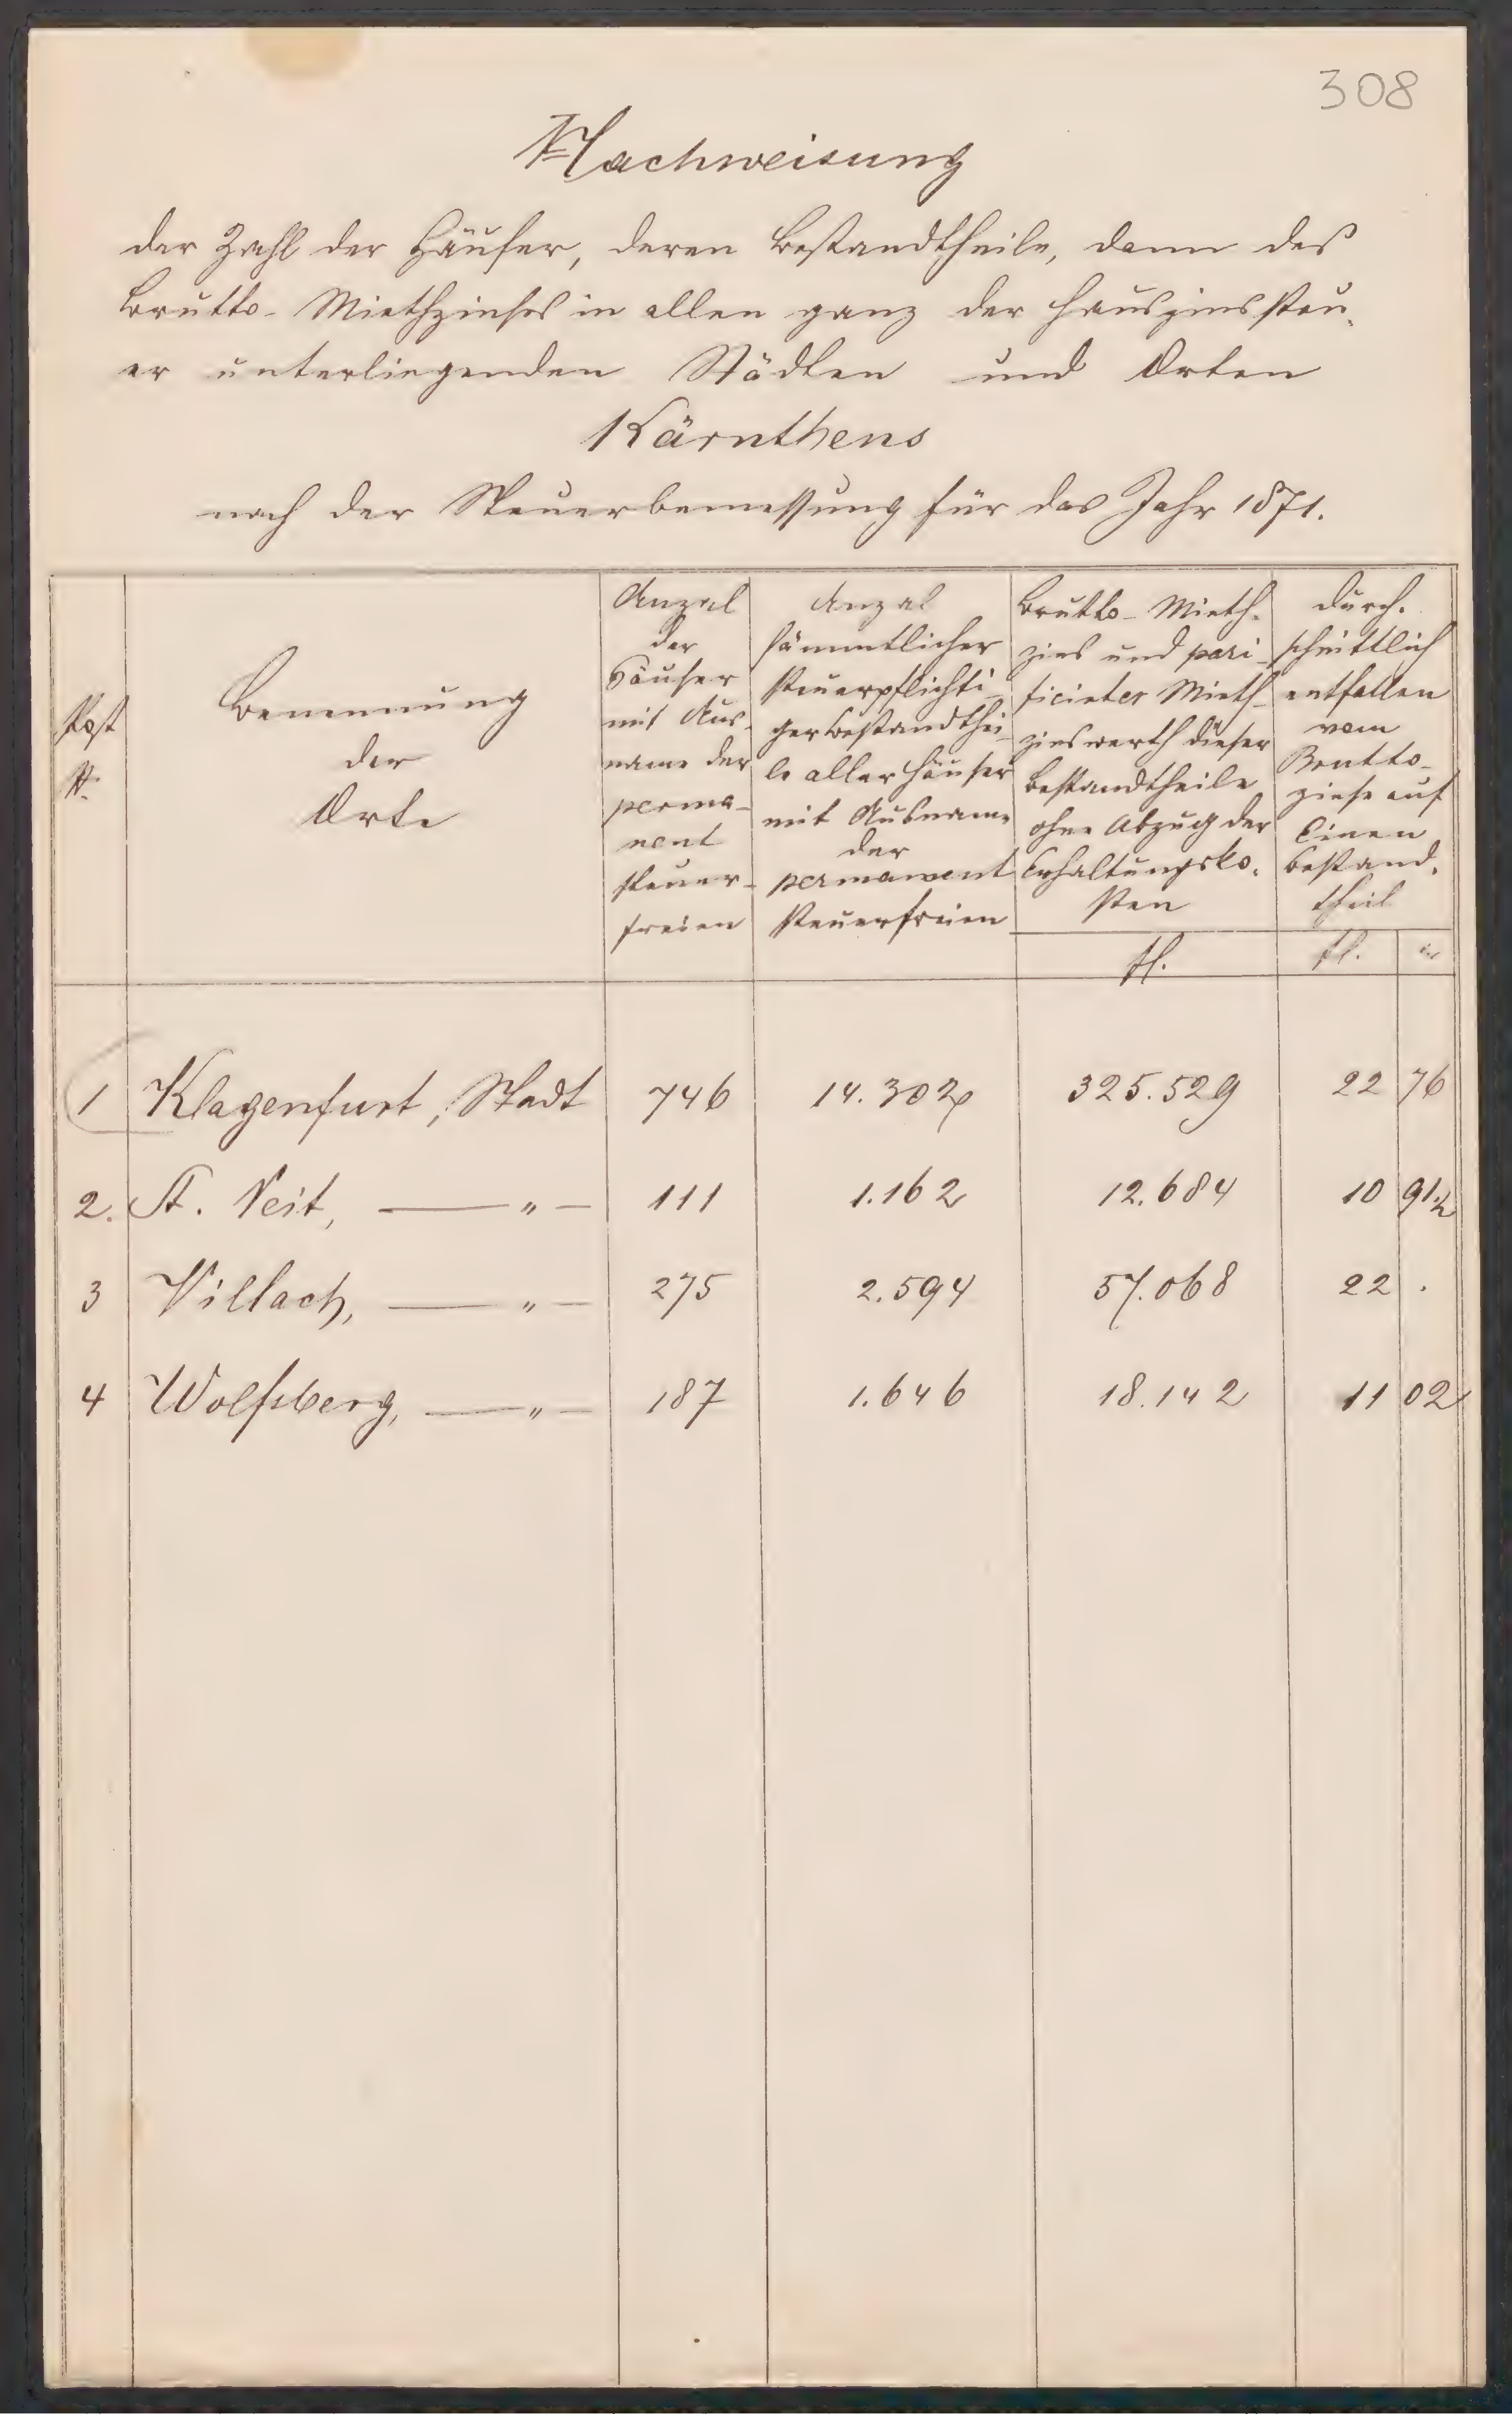 308
Nachweisung
der Zahl der Häuser, deren Bestandtheile, dann des
Brutto-Miethzinses in allen ganz der Hauszinssteu-
er unterliegenden Städten und Orten
Kärnthens
nach der Steuerbemessung für das Jahr 1871.
Post
N.
Benennung
der
Orte
Anzal
der
Häuser
mit Aus-
name der
perma-
nent
steuer-
freien
Anzal
sämmtlicher
steuerpflichti-
ger Bestandthei-
le aller Häuser
mit Ausname
der
permanent
steuerfreien
Brutto-Mieth-
zins und pari-
ficirter Mieth-
zinswerth dieser
Bestandtheile
ohne Abzug der
Erhaltungsko-
sten
fl.
Durch-
schnittlich
entfallen
vom
Brutto-
zinse auf
Einen
Bestand-
theil
fl.
1 Klagenfurt, Stadt 746 14.302 325.529 22 76
2. St. Veit, — " — 111 1.162 12.684 10 91½
3 Villach, — " — 275 2.594 57.068 22 .
4 Wolfsberg, — " — 187 1.646 18.142 11 02